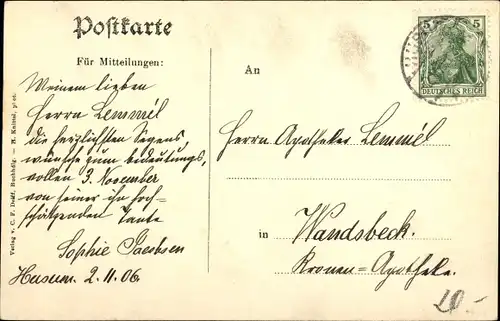 Postkarte
Für Mitteilungen:
An
5 5
DEUTSCHES REICH
Meinem lieben
Herrn Lemmél
die herzlichsten Segens
wünsche zum bedeutungs,
vollen 3. November
von seiner ihn hoch-
schätzenden Tante
Sophie
Husum. 2.11.06.
Herrn Apotheker Lemmél
in Wandsbeck.
Kronen=Apotheke.
20.-
Verlag v. C. F. Delff, Buchhdlg.